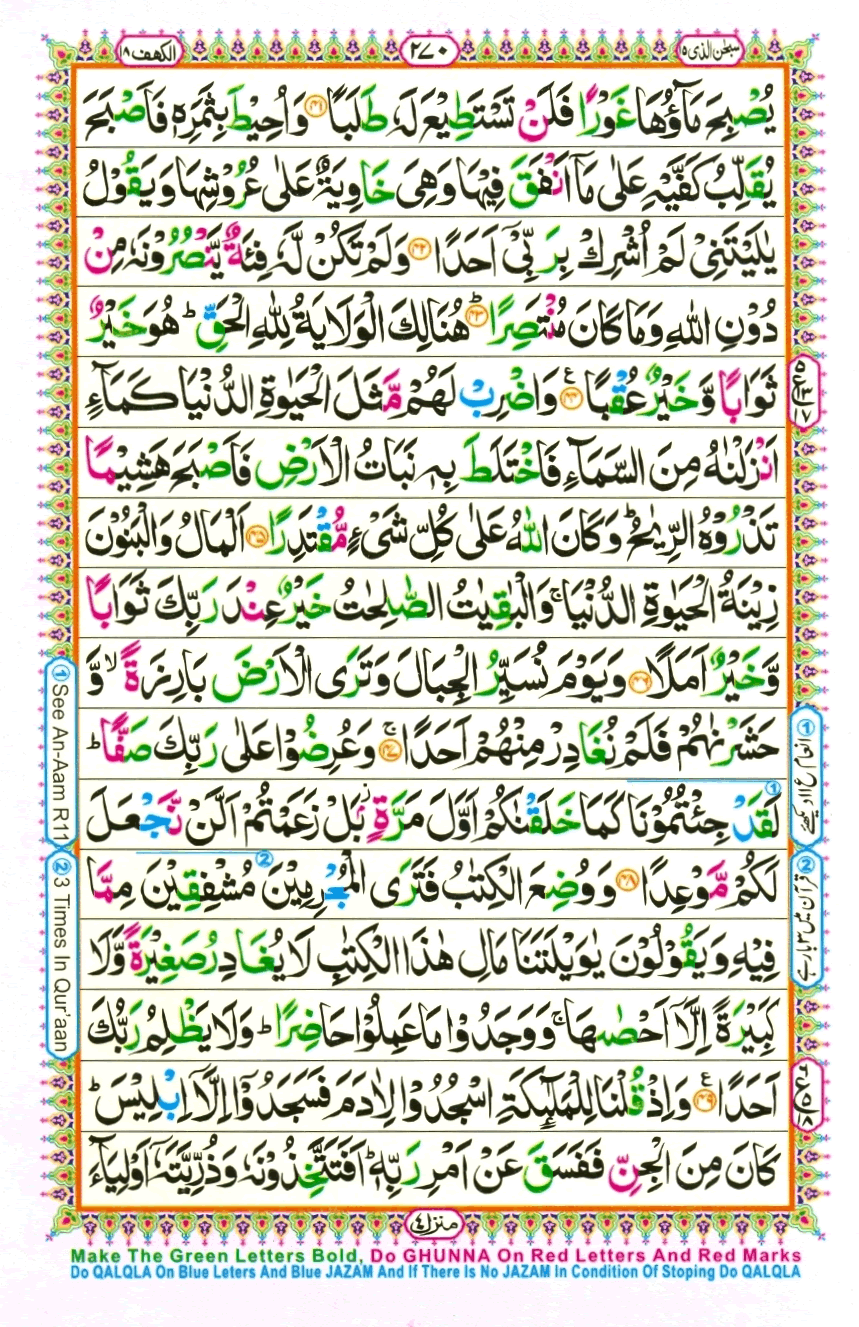 سبحٰن الذی ١٥
٢٧٠
الکهف ١٨
يُصْبِحَ مَآؤُهَا غَوْرًا فَلَنْ تَسْتَطِيْعَ لَهٗ طَلَبًا ﴿٤١﴾ وَاُحِيْطَ بِثَمَرِهٖ فَاَصْبَحَ
يُقَلِّبُ كَفَّيْهِ عَلٰى مَآ اَنْفَقَ فِيْهَا وَهِيَ خَاوِيَةٌ عَلٰى عُرُوْشِهَا وَيَقُوْلُ
يٰلَيْتَنِيْ لَمْ اُشْرِكْ بِرَبِّيْٓ اَحَدًا ﴿٤٢﴾ وَلَمْ تَكُنْ لَّهٗ فِئَةٌ يَّنْصُرُوْنَهٗ مِنْ
دُوْنِ اللّٰهِ وَمَا كَانَ مُنْتَصِرًا ؕ﴿٤٣﴾ هُنَالِكَ الْوَلَايَةُ لِلّٰهِ الْحَقِّ ؕ هُوَ خَيْرٌ
ثَوَابًا وَّخَيْرٌ عُقْبًا ﴿٤٤﴾ وَاضْرِبْ لَهُمْ مَّثَلَ الْحَيٰوةِ الدُّنْيَا كَمَآءٍ
اَنْزَلْنٰهُ مِنَ السَّمَآءِ فَاخْتَلَطَ بِهٖ نَبَاتُ الْاَرْضِ فَاَصْبَحَ هَشِيْمًا
تَذْرُوْهُ الرِّيٰحُ ؕ وَكَانَ اللّٰهُ عَلٰى كُلِّ شَيْءٍ مُّقْتَدِرًا ﴿٤٥﴾ اَلْمَالُ وَالْبَنُوْنَ
زِيْنَةُ الْحَيٰوةِ الدُّنْيَا ۚ وَالْبٰقِيٰتُ الصّٰلِحٰتُ خَيْرٌ عِنْدَ رَبِّكَ ثَوَابًا
وَّخَيْرٌ اَمَلًا ﴿٤٦﴾ وَيَوْمَ نُسَيِّرُ الْجِبَالَ وَتَرَى الْاَرْضَ بَارِزَةً ۙ وَّ
حَشَرْنٰهُمْ فَلَمْ نُغَادِرْ مِنْهُمْ اَحَدًا ۚ﴿٤٧﴾ وَعُرِضُوْا عَلٰى رَبِّكَ صَفًّا ؕ
لَقَدْ جِئْتُمُوْنَا كَمَا خَلَقْنٰكُمْ اَوَّلَ مَرَّةٍ ؗ بَلْ زَعَمْتُمْ اَلَّنْ نَّجْعَلَ
لَكُمْ مَّوْعِدًا ﴿٤٨﴾ وَوُضِعَ الْكِتٰبُ فَتَرَى الْمُجْرِمِيْنَ مُشْفِقِيْنَ مِمَّا
فِيْهِ وَيَقُوْلُوْنَ يٰوَيْلَتَنَا مَالِ هٰذَا الْكِتٰبِ لَا يُغَادِرُ صَغِيْرَةً وَّلَا
كَبِيْرَةً اِلَّآ اَحْصٰىهَا ۚ وَوَجَدُوْا مَا عَمِلُوْا حَاضِرًا ؕ وَلَا يَظْلِمُ رَبُّكَ
اَحَدًا ﴿٤٩﴾ وَاِذْ قُلْنَا لِلْمَلٰٓئِكَةِ اسْجُدُوْا لِاٰدَمَ فَسَجَدُوْٓا اِلَّآ اِبْلِيْسَ ؕ
كَانَ مِنَ الْجِنِّ فَفَسَقَ عَنْ اَمْرِ رَبِّهٖ ؕ اَفَتَتَّخِذُوْنَهٗ وَذُرِّيَّتَهٗٓ اَوْلِيَآءَ
① See An-Aam R11
② 3 Times In Qur'aan
① انعام ع ١١ دیکھئے
② قرآن میں ٣ بار ہے
منزل ٤
Make The Green Letters Bold, Do GHUNNA On Red Letters And Red Marks
Do QALQLA On Blue Leters And Blue JAZAM And If There Is No JAZAM In Condition Of Stoping Do QALQLA